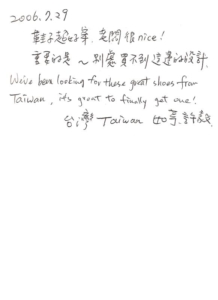 2006.7.29
鞋子超好穿,老闆很nice!
重要的是~別處買不到這邊的設計.
We've been looking for these great shoes from
Taiwan, it's great to finally get one!
台灣 Taiwan